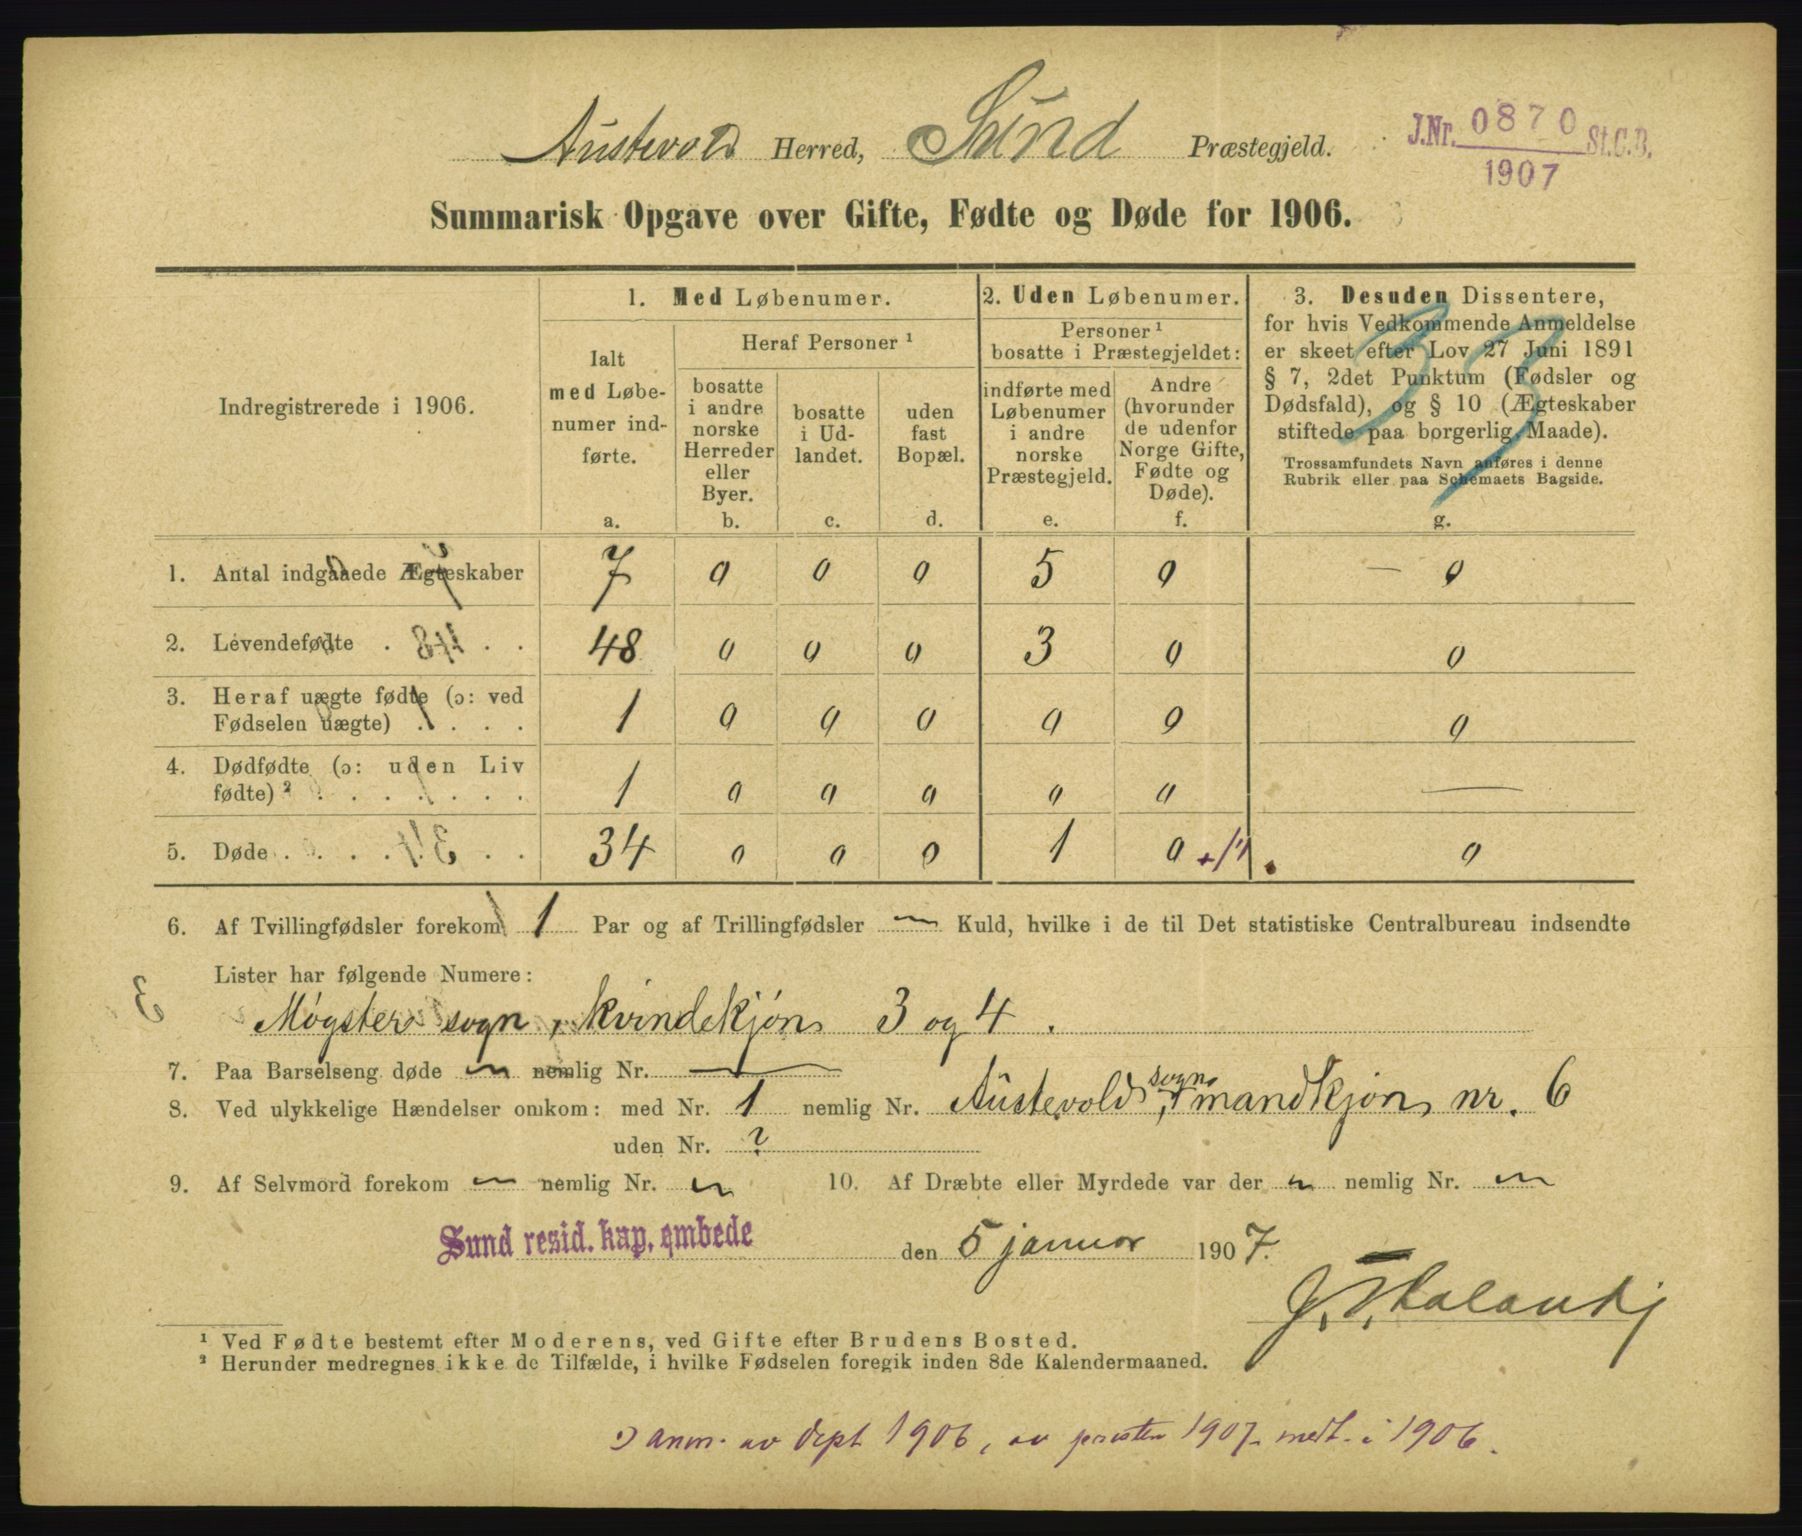 Austevold Herred, Sund Præstegjeld.
J.Nr. 0870 St.C.B.
1907
Summarisk Opgave over Gifte, Fødte og Døde for 1906.
Indregistrerede i 1906.
1. Med Løbenumer.
Ialt
med Løbe-
numer ind-
førte.
a.
Heraf Personer ¹
bosatte
i andre
norske
Herreder
eller
Byer.
b.
bosatte
i Ud-
landet.
c.
uden
fast
Bopæl.
d.
2. Uden Løbenumer.
Personer ¹
bosatte i Præstegjeldet:
indførte med
Løbenumer
i andre
norske
Præstegjeld.
e.
Andre
(hvorunder
de udenfor
Norge Gifte,
Fødte og
Døde).
f.
3. Desuden Dissentere,
for hvis Vedkommende Anmeldelse
er skeet efter Lov 27 Juni 1891
§ 7, 2det Punktum (Fødsler og
Dødsfald), og § 10 (Ægteskaber
stiftede paa borgerlig Maade).
Trossamfundets Navn anføres i denne
Rubrik eller paa Schemaets Bagside.
g.
33
1. Antal indgaaede Ægteskaber 7 0 0 0 5 0 — 0
2. Levendefødte . . . . 48 0 0 0 3 0 0
3. Heraf uægte fødte (ɔ: ved
Fødselen uægte) . . . . 1 0 0 0 0 0 0
4. Dødfødte (ɔ: uden Liv
fødte) ² . . . . . . . 1 0 0 0 0 0 —
5. Døde . . . . . . 34 0 0 0 1 0 +1 0
6. Af Tvillingfødsler forekom 1 Par og af Trillingfødsler — Kuld, hvilke i de til Det statistiske Centralbureau indsendte
Lister har følgende Numere:
Møgster sogn, kvindekjøn 3 og 4.
7. Paa Barselseng døde — nemlig Nr. —
8. Ved ulykkelige Hændelser omkom: med Nr. 1 nemlig Nr. Austevold sogn, mandkjøn nr. 6
uden Nr. ?
9. Af Selvmord forekom — nemlig Nr. — 10. Af Dræbte eller Myrdede var der — nemlig Nr. —
Sund resid. kap. embede den 5 januar 1907.
¹ Ved Fødte bestemt efter Moderens, ved Gifte efter Brudens Bosted.
² Herunder medregnes ikke de Tilfælde, i hvilke Fødselen foregik inden 8de Kalendermaaned.
anm. av dept 1906, av presten 1907 medt. i 1906.